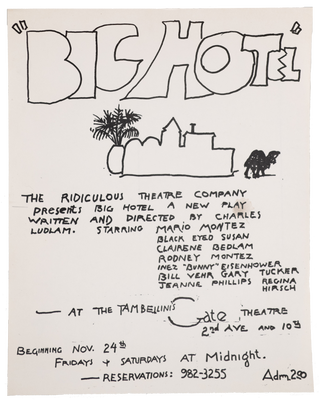 "BIG HOTEL"
THE RIDICULOUS THEATRE COMPANY
presents BIG HOTEL A NEW PLAY
WRITTEN AND DIRECTED BY CHARLES
LUDLAM. STARRING MARIO MONTEZ
BLACK EYED SUSAN
CLAIRENE BEDLAM
RODNEY MONTEZ
INEZ "BUNNY" EISENHOWER
BILL VEHR GARY TUCKER
JEANNE PHILLIPS REGINA
HIRSCH
— AT THE TAMBELLINIS Gate THEATRE
2nd AVE AND 10th
BEGINNING NOV. 24th
FRIDAYS & SATURDAYS AT Midnight.
— RESERVATIONS: 982-3255 Adm 2.50